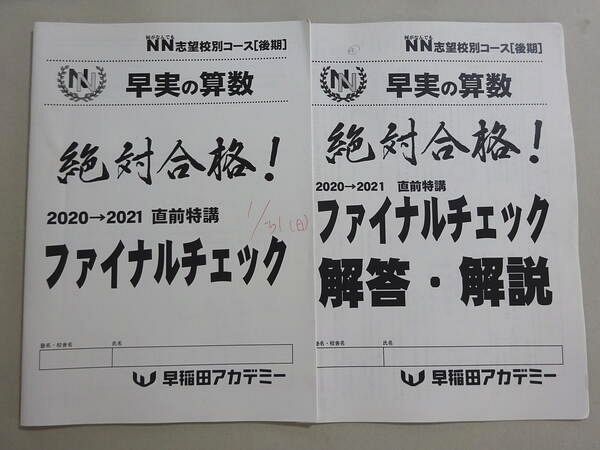 何がなんでも
NN志望校別コース[後期]
NN
早実の算数
絶対合格!
2020→2021 直前特講
1/31(日)
ファイナルチェック
塾名・校舎名
氏名
早稲田アカデミー
何がなんでも
NN志望校別コース[後期]
NN
早実の算数
絶対合格!
2020→2021 直前特講
ファイナルチェック
解答・解説
塾名・校舎名
氏名
早稲田アカデミー